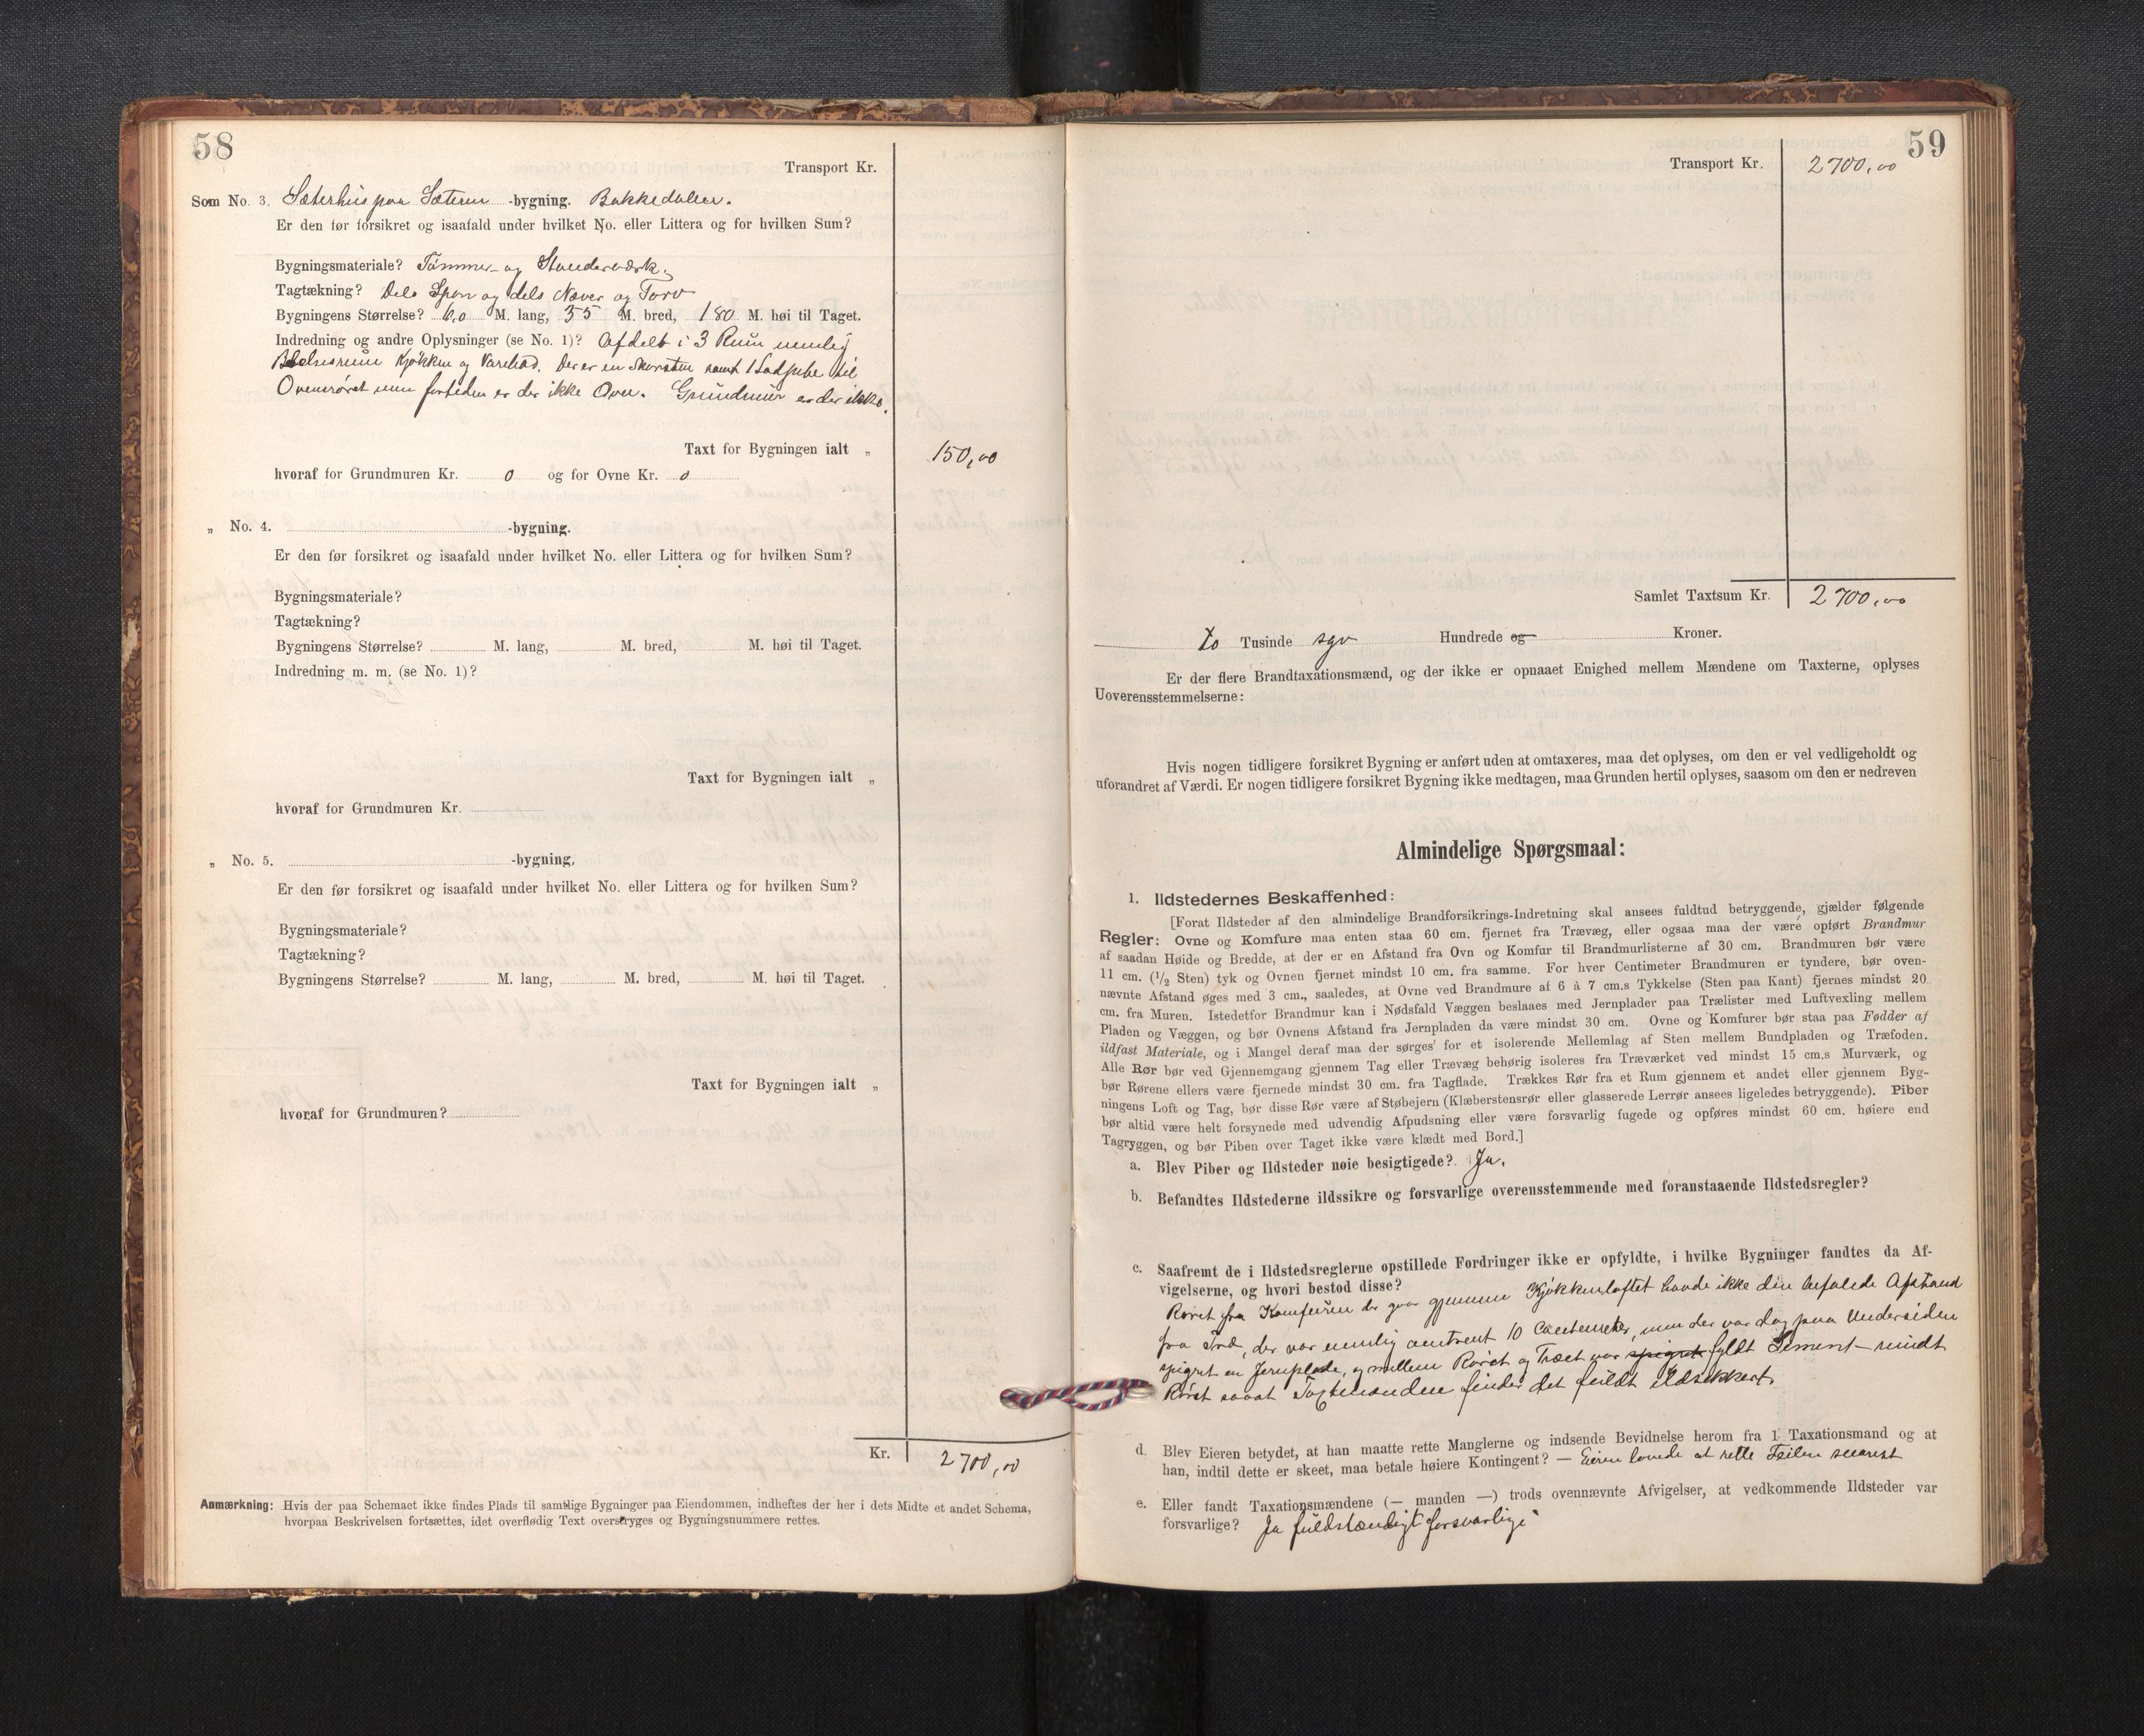 58
Transport Kr.
Som No. 3. Sæterhus paa Sæteren -bygning. Bakkedalen.
Er den før forsikret og isaafald under hvilket No. eller Littera og for hvilken Sum?
Bygningsmateriale? Tømmer- og Standerværk.
Tagtækning? Dels Spon og dels Næver og Torv
Bygningens Størrelse? 6,0 M. lang, 35 M. bred, 180 M. høi til Taget.
Indredning og andre Oplysninger (se No. 1)? Afdelt i 3 Rum nemlig
Kjøkken og Der er en Skorsten samt 1 til
Ovensrøret men fortiden er der ikke Ovn. Grundmur er der ikke.
Taxt for Bygningen ialt „ 150,00
hvoraf for Grundmuren Kr. 0 og for Ovne Kr. 0
„ No. 4. -bygning.
Er den før forsikret og isaafald under hvilket No. eller Littera og for hvilken Sum?
Bygningsmateriale?
Tagtækning?
Bygningens Størrelse? M. lang, M. bred, M. høi til Taget.
Indredning m. m. (se No. 1)?
Taxt for Bygningen ialt „
hvoraf for Grundmuren Kr.
„ No. 5. -bygning.
Er den før forsikret og isaafald under hvilket No. eller Littera og for hvilken Sum?
Bygningsmateriale?
Tagtækning?
Bygningens Størrelse? M. lang, M. bred, M. høi til Taget.
Taxt for Bygningen ialt „
hvoraf for Grundmuren?
Kr. 2700,00
Anmærkning: Hvis der paa Schemaet ikke findes Plads til samtlige Bygninger paa Eiendommen, indheftes der her i dets Midte et andet Schema,
hvorpaa Beskrivelsen fortsættes, idet overflødig Text overstryges og Bygningsnummere rettes.
59
Transport Kr. 2700,00
Samlet Taxtsum Kr. 2700,00
to Tusinde syv Hundrede og Kroner.
Er der flere Brandtaxationsmænd, og der ikke er opnaaet Enighed mellem Mændene om Taxterne, oplyses
Uoverensstemmelserne:
Hvis nogen tidligere forsikret Bygning er anført uden at omtaxeres, maa det oplyses, om den er vel vedligeholdt og
uforandret af Værdi. Er nogen tidligere forsikret Bygning ikke medtagen, maa Grunden hertil oplyses, saasom om den er nedreven
Almindelige Spørgsmaal:
1. Ildstedernes Beskaffenhed:
[Forat Ildsteder af den almindelige Brandforsikrings-Indretning skal ansees fuldtud betryggende, gjælder følgende
Regler: Ovne og Komfure maa enten staa 60 cm. fjernet fra Trævæg, eller ogsaa maa der være opført Brandmur
af saadan Høide og Bredde, at der er en Afstand fra Ovn og Komfur til Brandmurlisterne af 30 cm. Brandmuren bør være
11 cm. (1/2 Sten) tyk og Ovnen fjernet mindst 10 cm. fra samme. For hver Centimeter Brandmuren er tyndere, bør oven-
nævnte Afstand øges med 3 cm., saaledes, at Ovne ved Brandmure af 6 à 7 cm.s Tykkelse (Sten paa Kant) fjernes mindst 20
cm. fra Muren. Istedetfor Brandmur kan i Nødsfald Væggen beslaaes med Jernplader paa Trælister med Luftvexling mellem
Pladen og Væggen, og bør Ovnens Afstand fra Jernpladen da være mindst 30 cm. Ovne og Komfurer bør staa paa Fødder af
ildfast Materiale, og i Mangel deraf maa der sørges for et isolerende Mellemlag af Sten mellem Bundpladen og Træfoden.
Alle Rør bør ved Gjennemgang gjennem Tag eller Trævæg behørig isoleres fra Træværket ved mindst 15 cm.s Murværk, og
bør Rørene ellers være fjernede mindst 30 cm. fra Tagflade. Trækkes Rør fra et Rum gjennem et andet eller gjennem Byg-
ningens Loft og Tag, bør disse Rør være af Støbejern (Klæberstensrør eller glasserede Lerrør ansees ligeledes betryggende). Piber
bør altid være helt forsynede med udvendig Afpudsning eller være forsvarlig fugede og opføres mindst 60 cm. høiere end
Tagryggen, og bør Piben over Taget ikke være klædt med Bord.]
a. Blev Piber og Ildsteder nøie besigtigede? Ja.
b. Befandtes Ildstederne ildssikre og forsvarlige overensstemmende med foranstaaende Ildstedsregler?
c. Saafremt de i Ildstedsreglerne opstillede Fordringer ikke er opfyldte, i hvilke Bygninger fandtes da Af-
vigelserne, og hvori bestod disse?
Røret fra Komfuren der gaar gjennem Kjøkkenloftet havde ikke den befalede Afstand
fra Træ, der var nemlig omtrent 10 Centemeter, men der var dog paa Undersiden
spigret en Jernplade, og mellem Røret og Træet var spigret fyldt Sement-rundt
Røret saaat Taxtmanden finder det fuldt ildsikkert.
d. Blev Eieren betydet, at han maatte rette Manglerne og indsende Bevidnelse herom fra 1 Taxationsmand og at
han, indtil dette er skeet, maa betale høiere Kontingent? — Eieren lovede at rette Feilen snarest
e. Eller fandt Taxationsmændene (— manden —) trods ovennævnte Afvigelser, at vedkommende Ildsteder var
forsvarlige? Ja fuldstændigt forsvarlige